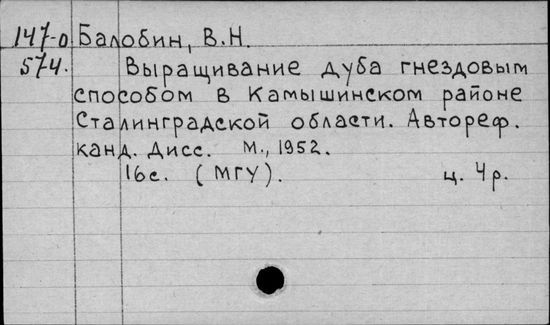 147-о Балобин, В.Н.
574. Выращивание дуба гнездовым
способом в Камышинском районе
Сталинградской области. Автореф.
канд. дисс. М., 1952.
16с. (МГУ). ц. 4р.